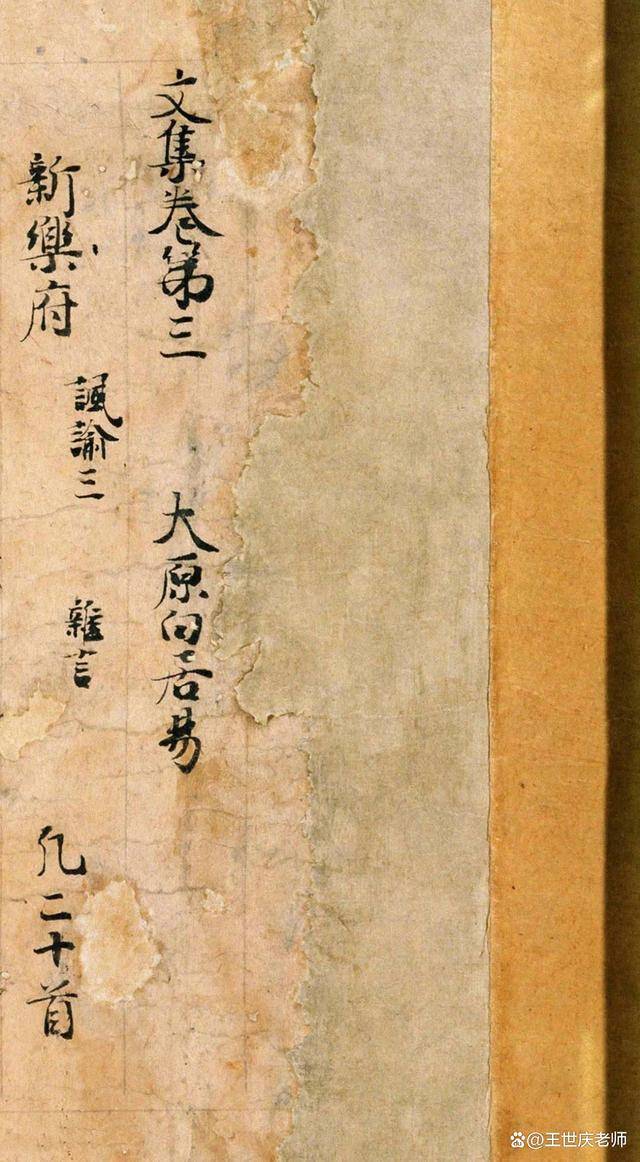 文集卷第三　大原白居易
新樂府　諷諭三　雜言　凡二十首
@王世庆老师